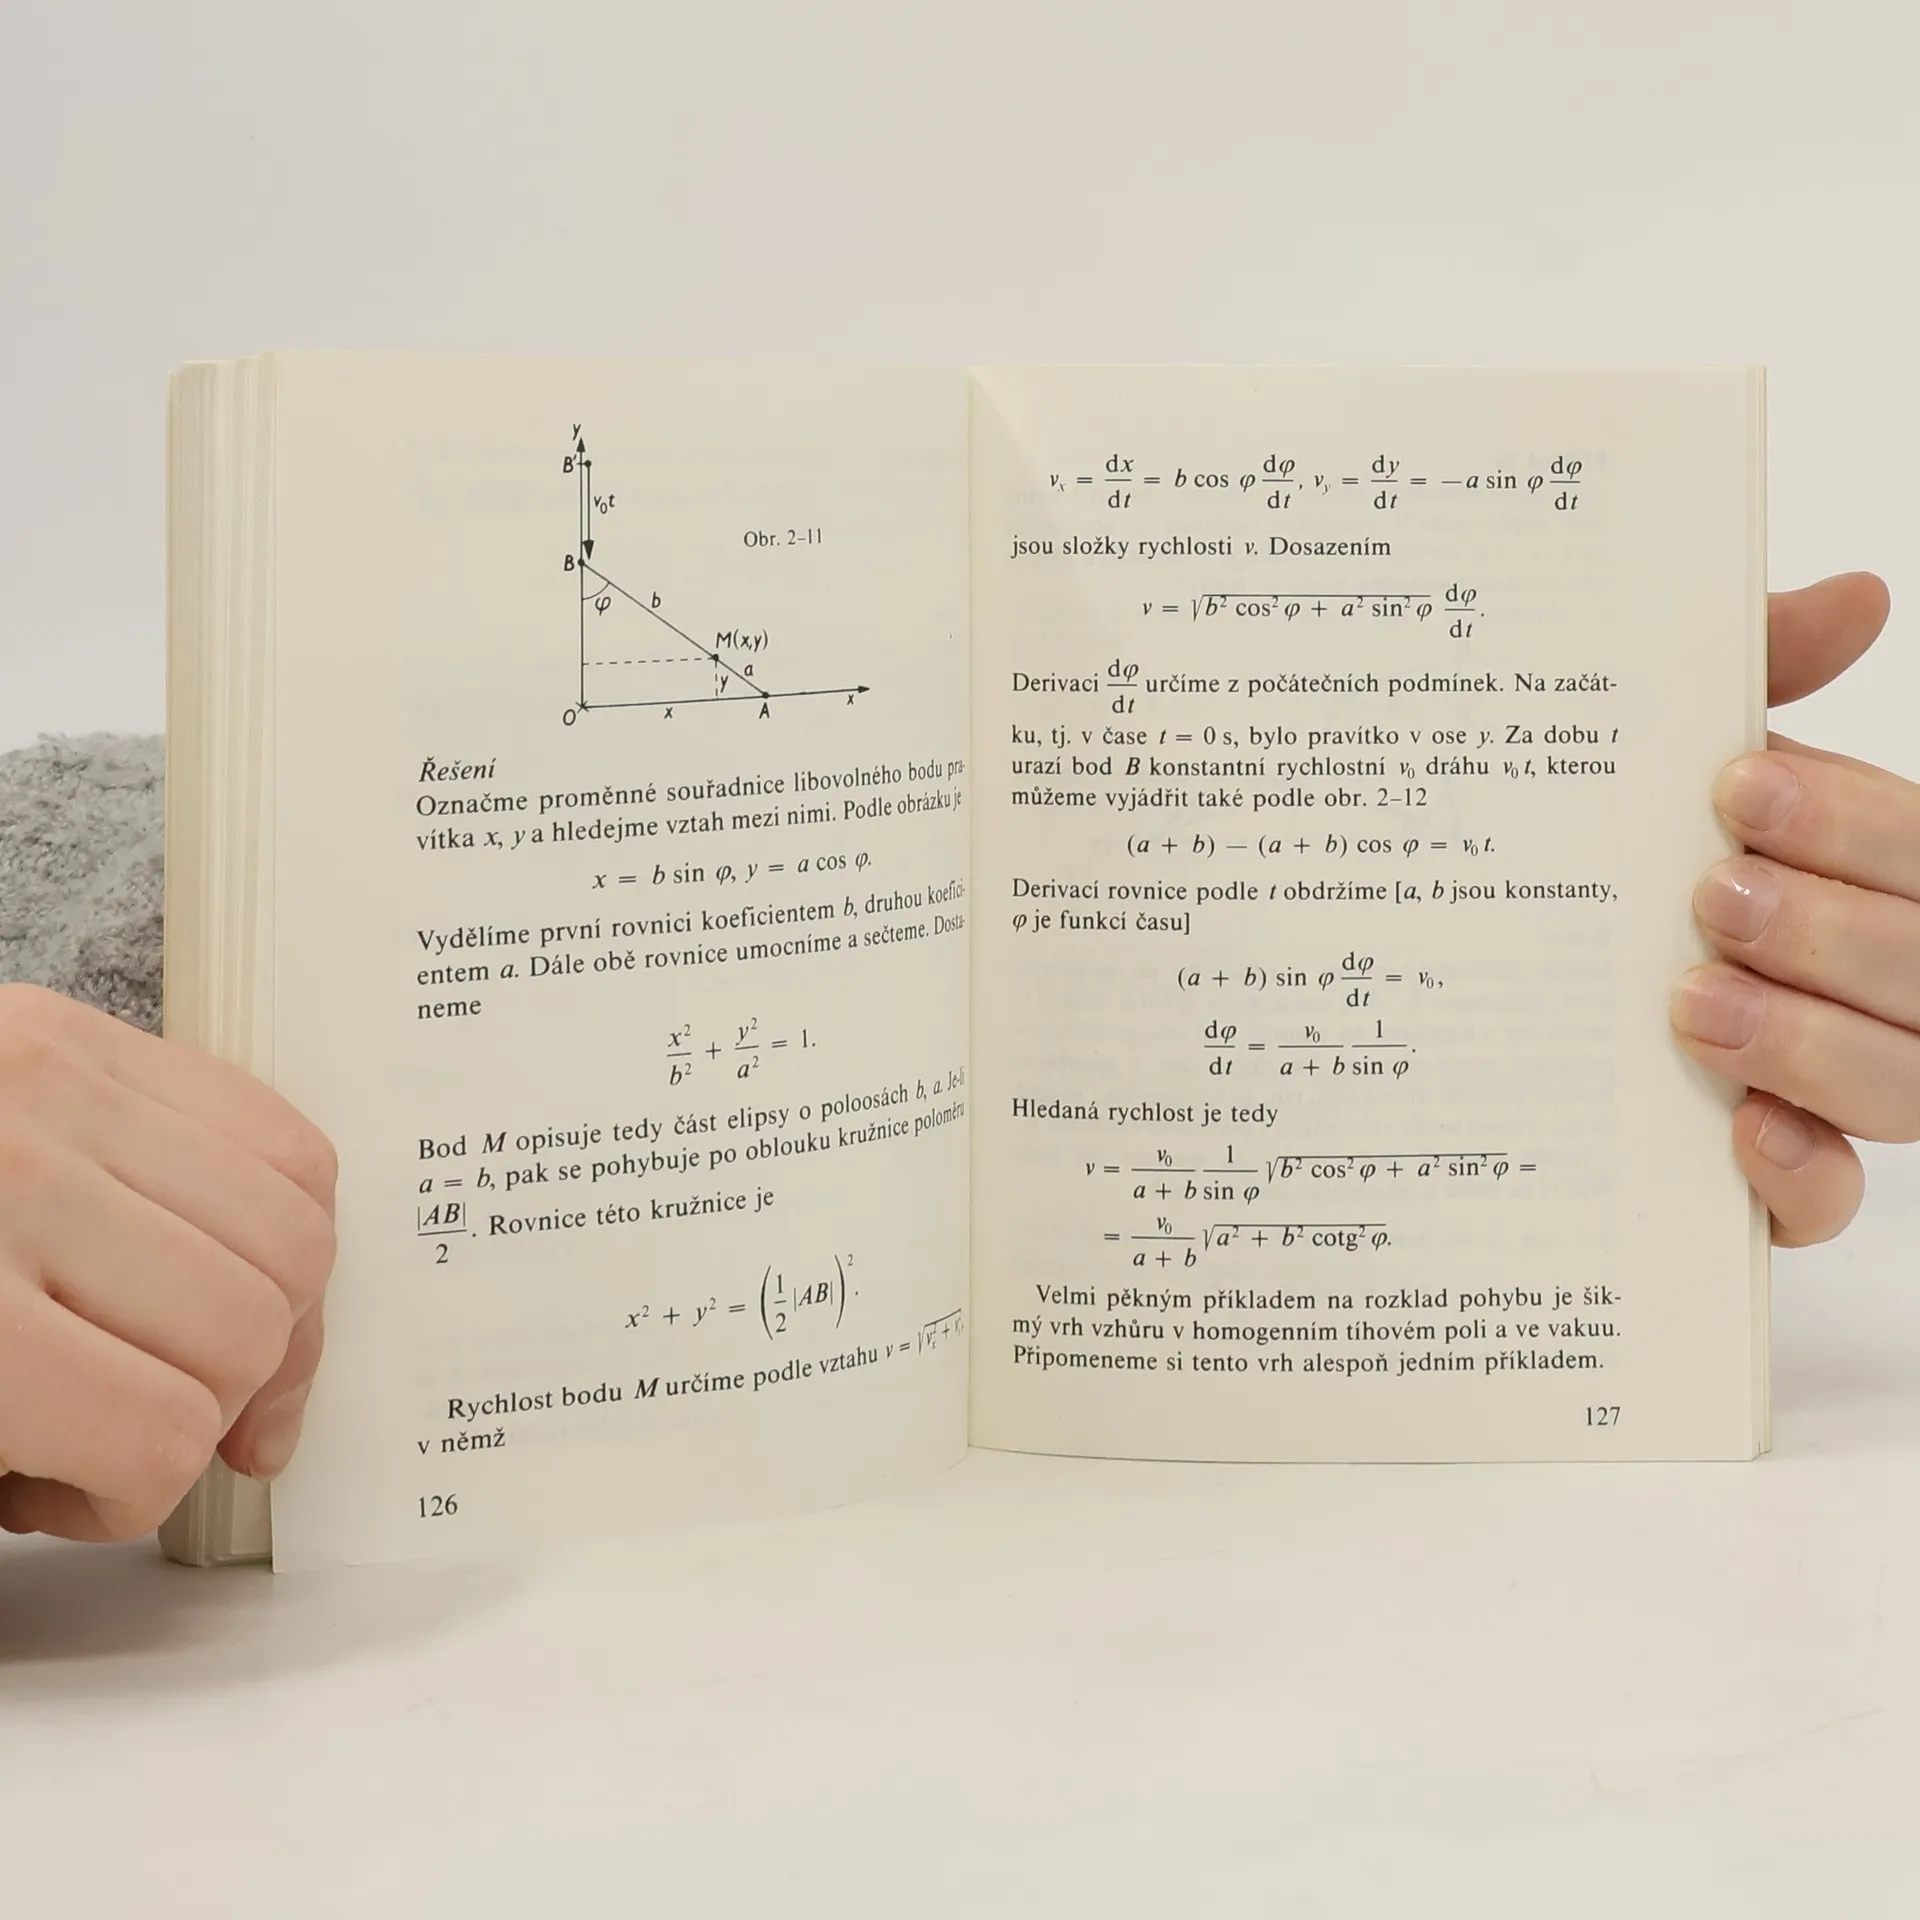 y
B'
v₀t
Obr. 2–11
B
φ
b
M(x,y)
a
y
O
x
A
x
Řešení
Označme proměnné souřadnice libovolného bodu pra-
vítka x, y a hledejme vztah mezi nimi. Podle obrázku je
x = b sin φ, y = a cos φ.
Vydělíme první rovnici koeficientem b, druhou koefici-
entem a. Dále obě rovnice umocníme a sečteme. Dosta-
neme
x²/b² + y²/a² = 1.
Bod M opisuje tedy část elipsy o poloosách b, a. Je-li
a = b, pak se pohybuje po oblouku kružnice poloměru
|AB|/2. Rovnice této kružnice je
x² + y² = (1/2 |AB|)².
Rychlost bodu M určíme podle vztahu v =
v němž
126
vₓ = dx/dt = b cos φ dφ/dt, v_y = dy/dt = −a sin φ dφ/dt
jsou složky rychlosti v. Dosazením
v = √(b² cos² φ + a² sin² φ) dφ/dt.
Derivaci dφ/dt určíme z počátečních podmínek. Na začát-
ku, tj. v čase t = 0 s, bylo pravítko v ose y. Za dobu t
urazí bod B konstantní rychlostní v₀ dráhu v₀ t, kterou
můžeme vyjádřit také podle obr. 2–12
(a + b) − (a + b) cos φ = v₀ t.
Derivací rovnice podle t obdržíme [a, b jsou konstanty,
φ je funkcí času]
(a + b) sin φ dφ/dt = v₀,
dφ/dt = v₀/(a + b) 1/sin φ.
Hledaná rychlost je tedy
v = v₀/(a + b) 1/sin φ √(b² cos² φ + a² sin² φ) =
= v₀/(a + b) √(a² + b² cotg² φ).
Velmi pěkným příkladem na rozklad pohybu je šik-
mý vrh vzhůru v homogenním tíhovém poli a ve vakuu.
Připomeneme si tento vrh alespoň jedním příkladem.
127